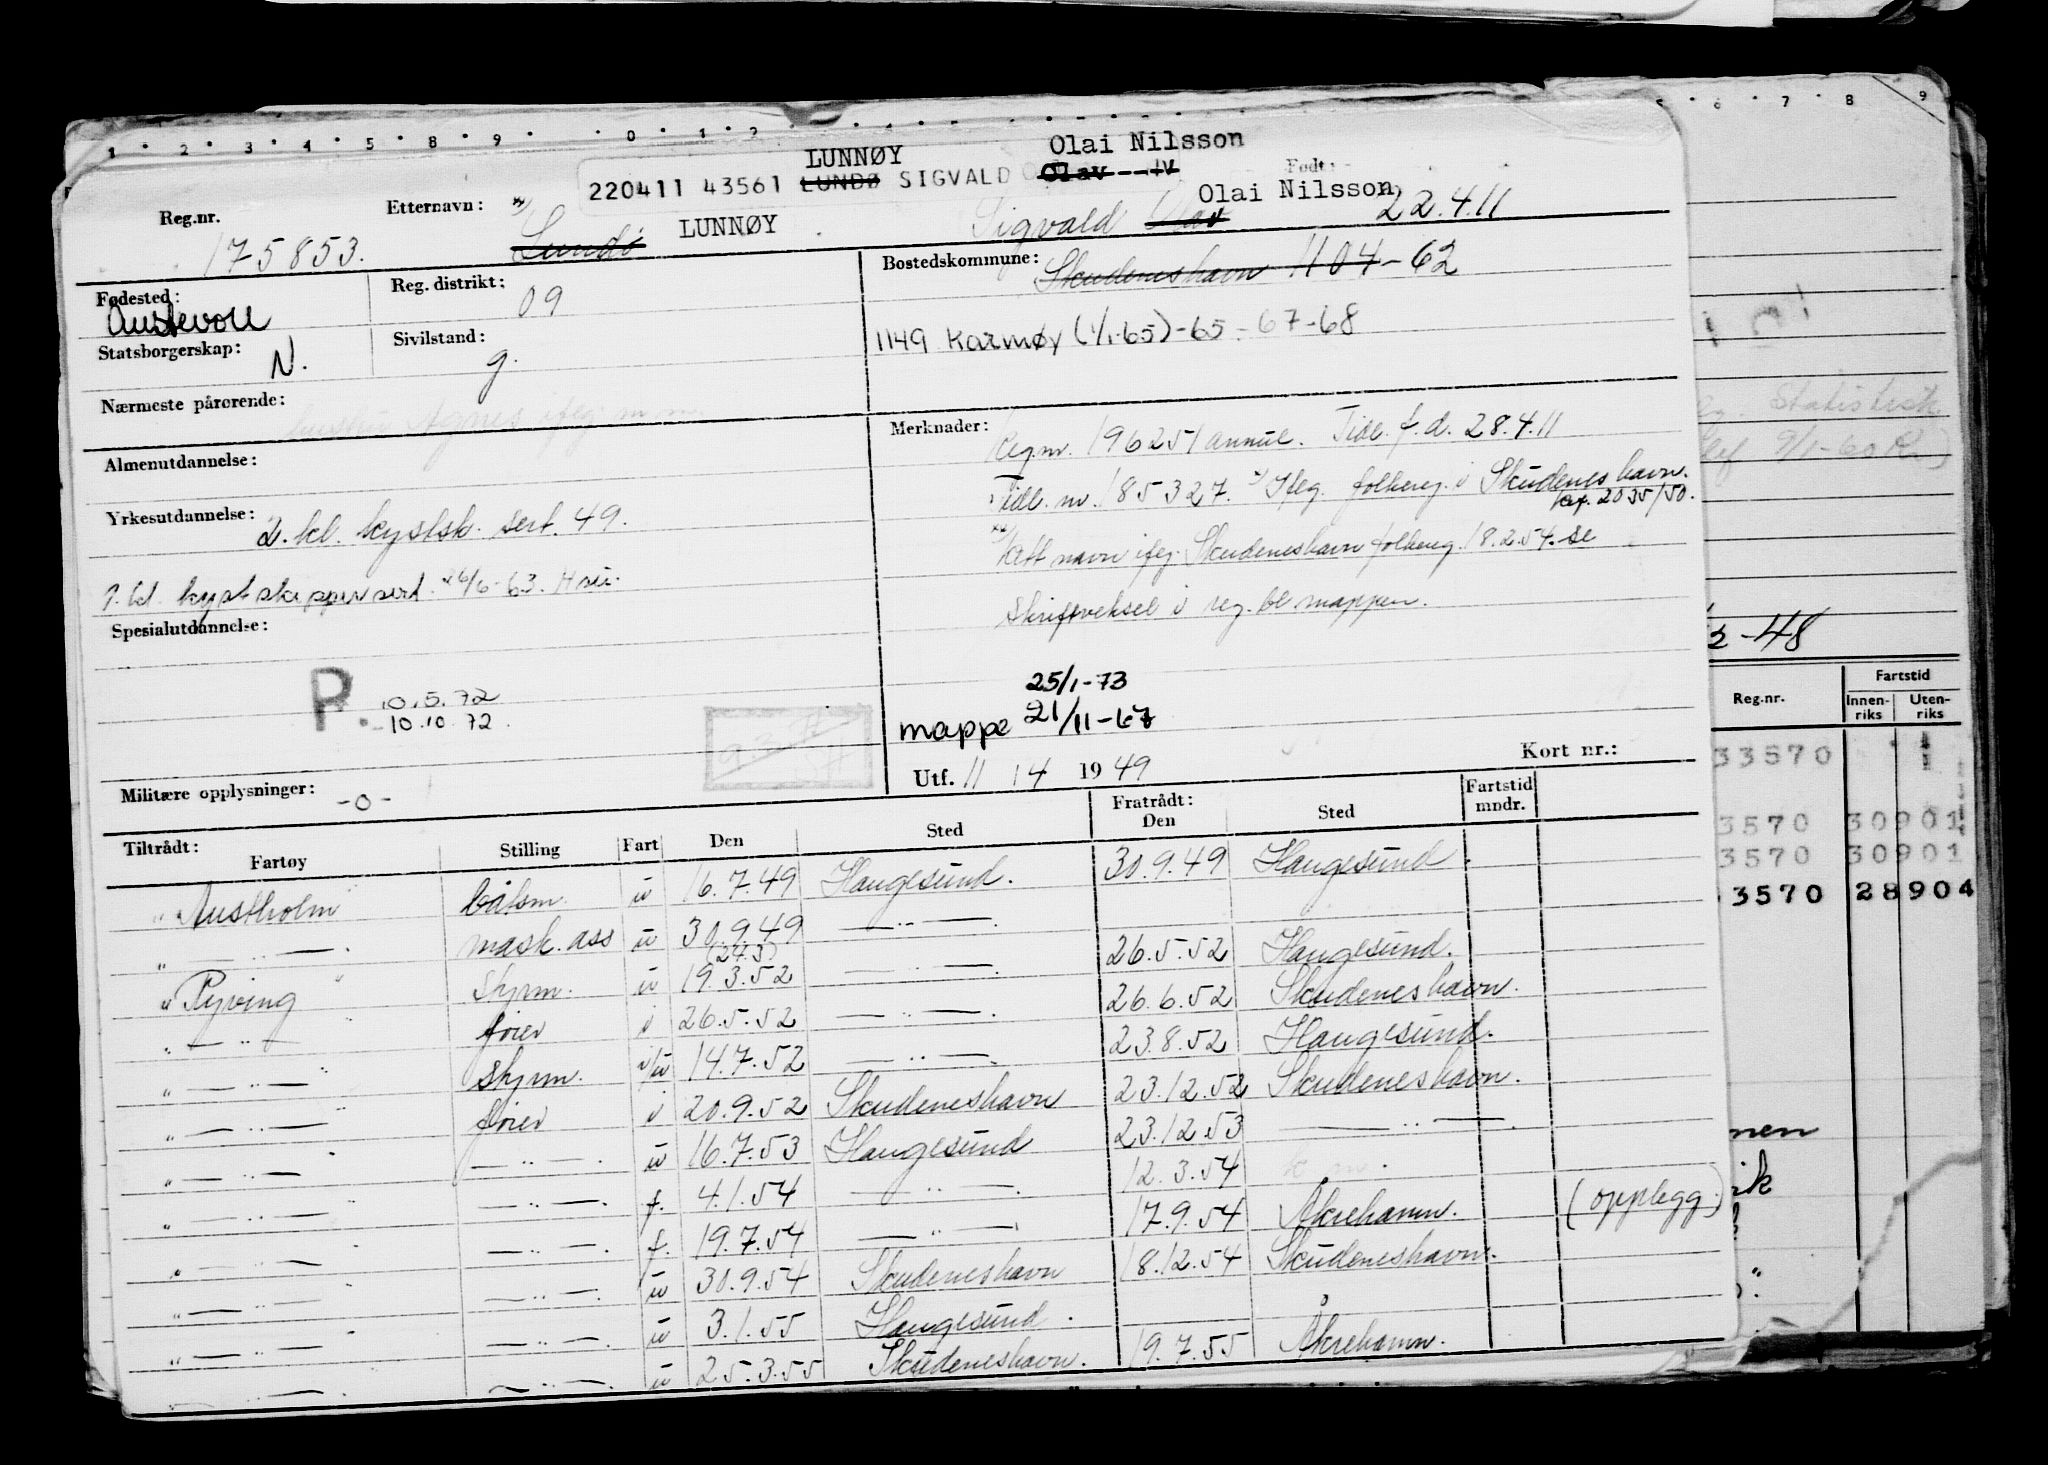 1 2 3 4 5 8 9 0 1 2
6 7 8 9
LUNNØY Olai Nilsson
220411 43561 LUNDØ SIGVALD Olav
Født:
Olai Nilsson
Reg.nr. 175853.
Etternavn: Lundø LUNNØY Sigvald Olav 22.4.11
Fødested: Austevoll
Reg. distrikt: 09
Bostedskommune: Skudeneshavn 1104-62
1149 Karmøy (1/1-65)-65-67-68
Statsborgerskap: N.
Sivilstand: g.
Nærmeste pårørende: Agnes
Merknader: Reg.nr. 196251 annul. Tidl. f.d. 28.4.11
Tidl. nr. 185327. Ifleg. folkereg. i Skudeneshavn.
kfr. 2035/50.
Rett navn iføg. Skudeneshavn folkereg. 18.2.54. se
skriftveksel i reg. bl mappen.
Almenutdannelse:
Yrkesutdannelse: 2. kl. kystsk. sert. 49.
1. kl. kystskippersert. 26/6-63.
Spesialutdannelse:
P. 10.5.72
-10.10.72.
25/1-73
mappe 21/11-67
Utf. 11 / 4 1949
Kort nr.:
Militære opplysninger: -0-
Tiltrådt:
Fartøy Stilling Fart Den Sted Fratrådt: Den Sted Fartstid mndr.
"Austholm" båtsm. u 16.7.49 Haugesund. 30.9.49 Haugesund.
" — " — mask. ass u 30.9.49 — " —
(24.3)
"Ryving" skjrm. u 19.3.52 — " — 26.5.52 Haugesund.
" — " — fører i 26.5.52 — " — 26.6.52 Skudeneshavn.
" — " — skjrm. i/u 14.7.52 — " — 23.8.52 Haugesund.
" — " — fører i 20.9.52 Skudeneshavn 23.12.52 Skudeneshavn.
" — " — — " — u 16.7.53 Haugesund 23.12.53 — " —
" — " — — " — f. 4.1.54 — " — 12.3.54
" — " — — " — f. 19.7.54 — " — 17.9.54 Åkrehamn. (opplegg)
" — " — — " — u 30.9.54 Skudeneshavn 18.12.54 Skudeneshavn.
" — " — — " — u 3.1.55 Haugesund.
" — " — — " — u 25.3.55 Skudeneshavn. 19.7.55 Åkrehamn.
Statistisk
9/1-60
-48
Reg.nr. Fartstid
Innen-riks Uten-riks
33570
3570 30901
3570 30901
3570 28904